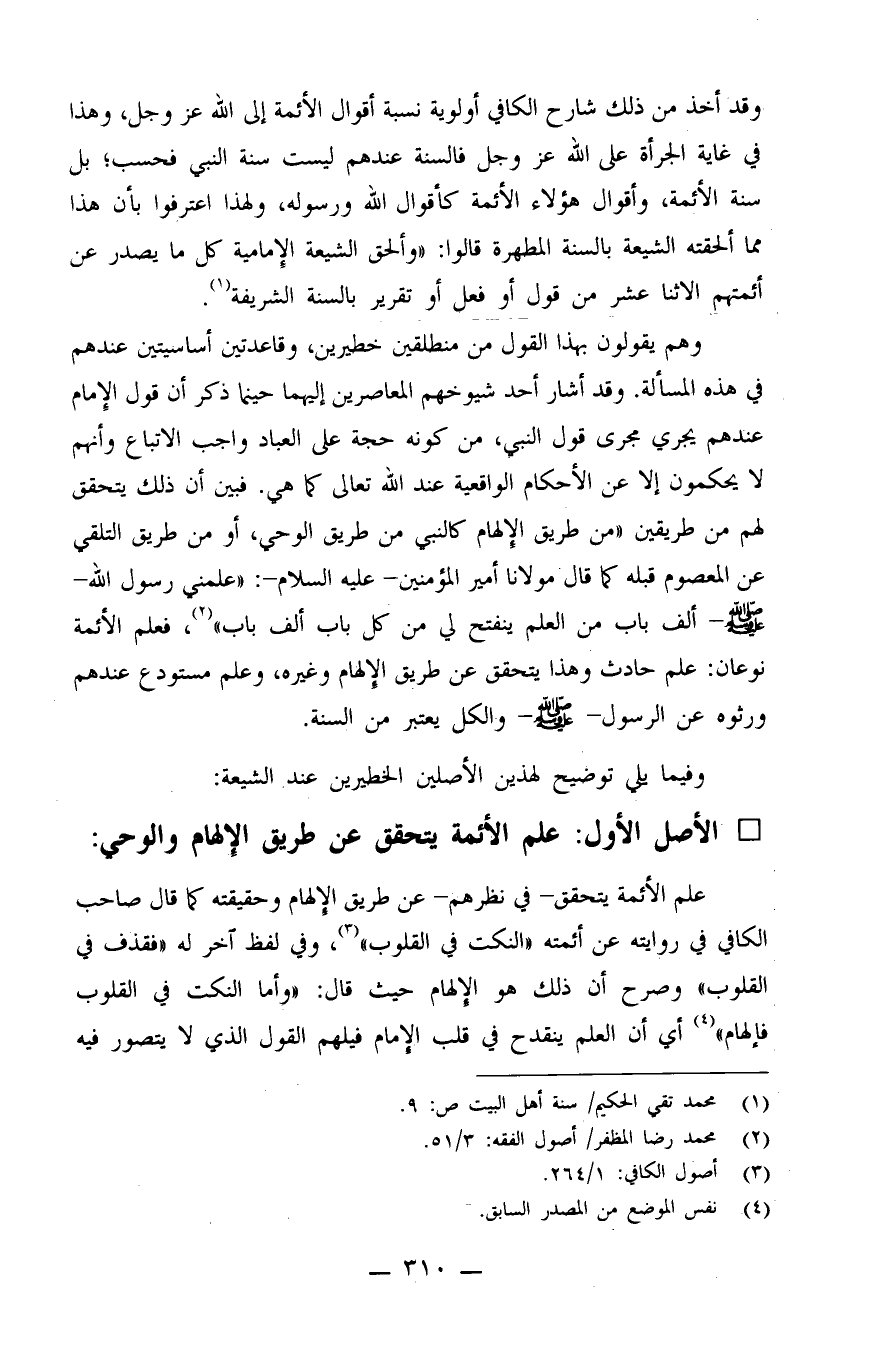 وقد أخذ من ذلك شارح الكافي أولوية نسبة أقوال الأئمة إلى الله عز وجل، وهذا
في غاية الجرأة على الله عز وجل فالسنة عندهم ليست سنة النبي فحسب؛ بل
سنة الأئمة، وأقوال هؤلاء الأئمة كأقوال الله ورسوله، ولهذا اعترفوا بأن هذا
مما ألحقته الشيعة بالسنة المطهرة قالوا: «وألحق الشيعة الإمامية كل ما يصدر عن
أئمتهم الاثنا عشر من قول أو فعل أو تقرير بالسنة الشريفة(١).
وهم يقولون بهذا القول من منطلقين خطيرين، وقاعدتين أساسيتين عندهم
في هذه المسألة. وقد أشار أحد شيوخهم المعاصرين إليهما حينما ذكر أن قول الإمام
عندهم يجري مجرى قول النبي، من كونه حجة على العباد واجب الاتباع وأنهم
لا يحكمون إلا عن الأحكام الواقعية عند الله تعالى كما هي. فبين أن ذلك يتحقق
لهم من طريقين «من طريق الإلهام كالنبي من طريق الوحي، أو من طريق التلقي
عن المعصوم قبله كما قال مولانا أمير المؤمنين– عليه السلام–: «علمني رسول الله–
ﷺ– ألف باب من العلم ينفتح لي من كل باب ألف باب»(٢)، فعلم الأئمة
نوعان: علم حادث وهذا يتحقق عن طريق الإلهام وغيره، وعلم مستودع عندهم
ورثوه عن الرسول– ﷺ– والكل يعتبر من السنة.
وفيما يلي توضيح لهذين الأصلين الخطيرين عند الشيعة:
□ الأصل الأول: علم الأئمة يتحقق عن طريق الإلهام والوحي:
علم الأئمة يتحقق– في نظرهم– عن طريق الإلهام وحقيقته كما قال صاحب
الكافي في روايته عن أئمته «النكت في القلوب»(٣)، وفي لفظ آخر له «فقذف في
القلوب» وصرح أن ذلك هو الإلهام حيث قال: «وأما النكت في القلوب
فإلهام»(٤) أي أن العلم ينقدح في قلب الإمام فيلهم القول الذي لا يتصور فيه
(١) محمد تقي الحكيم/ سنة أهل البيت ص: ٩.
(٢) محمد رضا المظفر/ أصول الفقه: ٥١/٣.
(٣) أصول الكافي: ٢٦٤/١.
(٤) نفس الموضع من المصدر السابق.
— ٣١٠ —